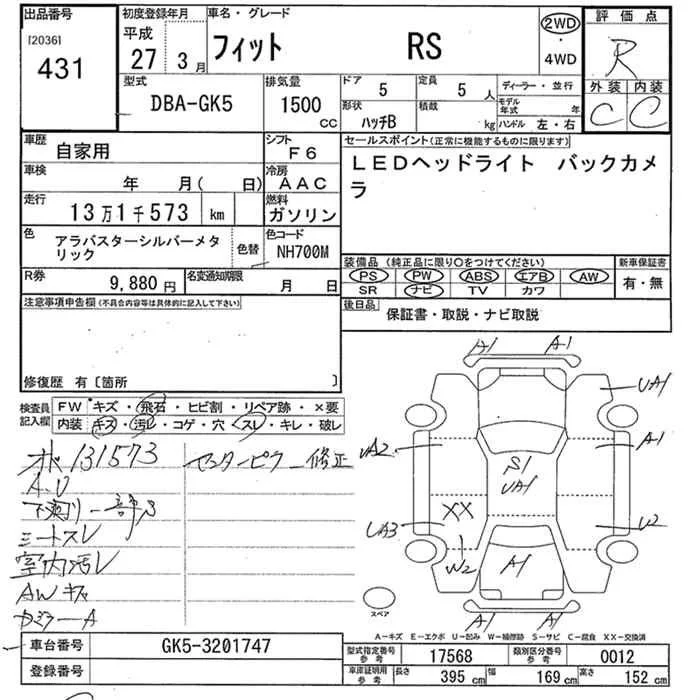 出品番号 初度登録年月 車名・グレード 2WD 評価点
[2036] 平成 ・ R
431 27 3月 フィット RS 4WD
型式 排気量 ドア 5 定員 5人 ディーラー・並行 外装 内装
DBA-GK5 1500CC 形状 ハッチB 積載 kg モデル年式 年 C C
ハンドル 左・右
車歴 自家用 シフト F6 セールスポイント(正常に機能するものに限ります)
車検 年 月( 日) 冷房 AAC LEDヘッドライト バックカメラ
走行 13万1千573 km 燃料 ガソリン
色 アラバスターシルバーメタリック 色替 色コード NH700M
装備品 (純正品に限り○をつけてください) 新車保証書
PS PW ABS エアB AW 有・無
SR ナビ TV カワ
R券 9,880円 名変通知期限 月 日
後日品 保証書・取説・ナビ取説
注意事項申告欄(不具合内容等は具体的に記入して下さい)
修復歴 有〔箇所 〕
検査員記入欄 FW キズ・飛石・ヒビ割・リペア跡・×要
内装 キズ・汚レ・コゲ・穴・スレ・キレ・破レ
131573 修正
シートスレ
室内汚レ
AWキズ
A1 A1
UA1
UA2 A1
S1
UA1
XX
UA3 U2
W2 A1
A1 A1
スペア
A-キズ E-エクボ U-凹み W-補修跡 S-サビ C-腐食 XX-交換済
車台番号 GK5-3201747
登録番号
型式指定番号 参考 17568 類別区分番号 参考 0012
車庫証明用 参考 長さ 395cm 幅 169cm 高さ 152cm